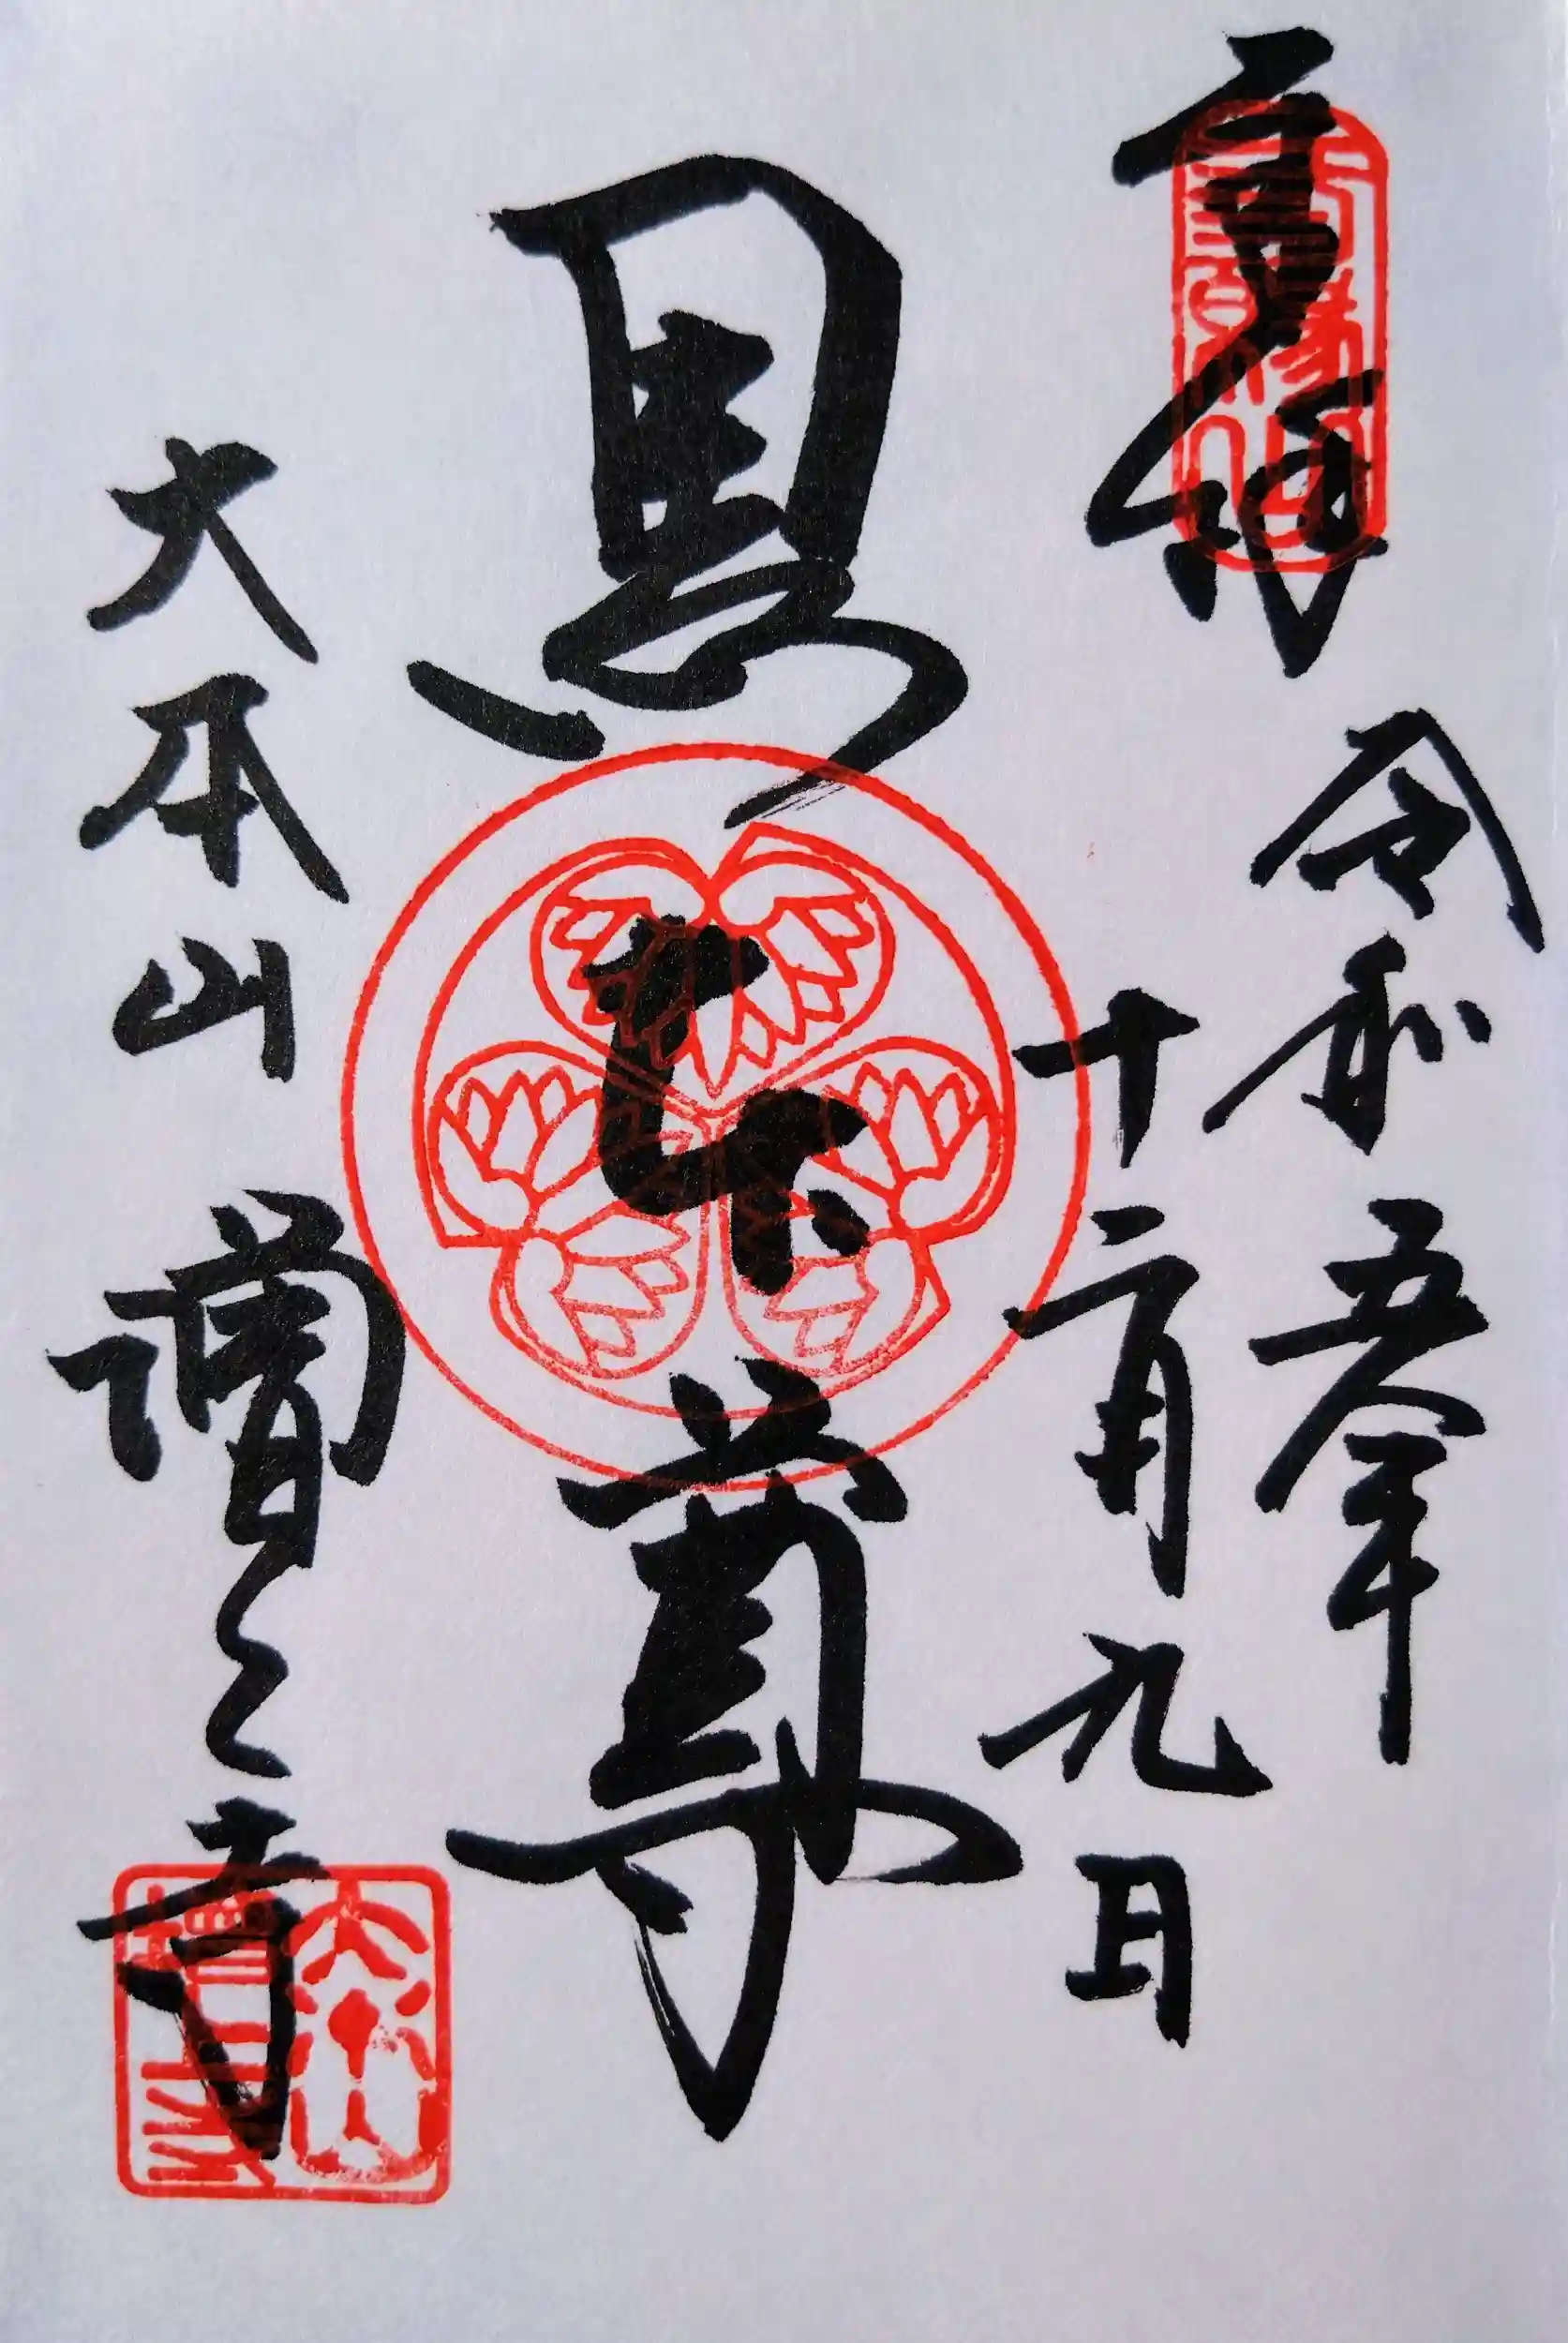 奉拝
令和五年
十二月九日
黒本尊
大本山 増上寺